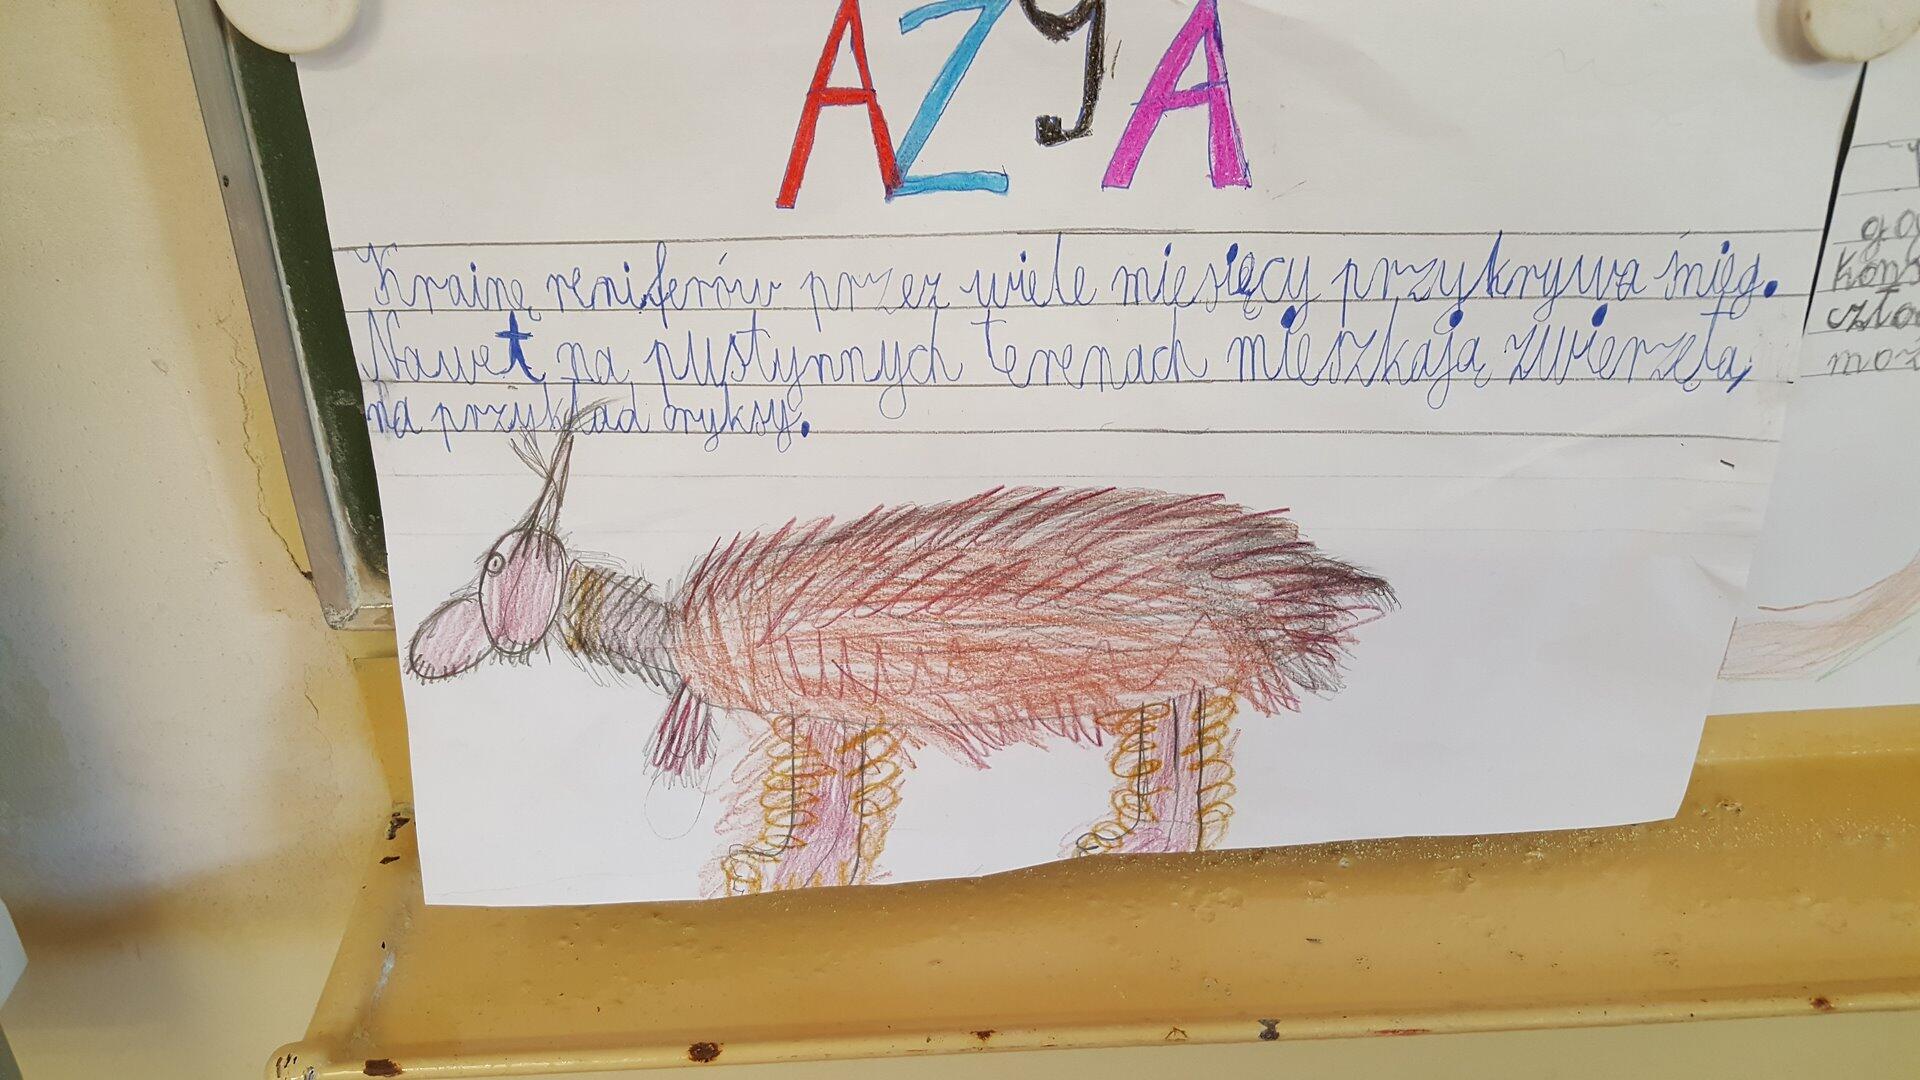 AZJA
Krainę reniferów przez wiele miesięcy przykrywa śnieg.
Nawet na pustynnych terenach mieszkają zwierzęta,
na przykład oryksy.